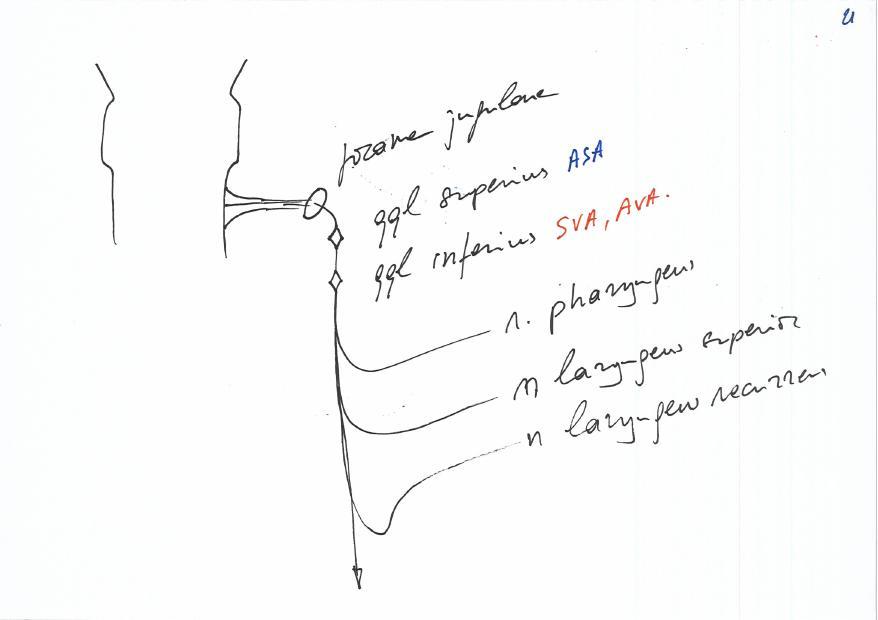 21
forame jugulare
ggl superius ASA
ggl inferius SVA, AVA.
r. pharyngeus
n laryngeus superior
n laryngeus recurrens